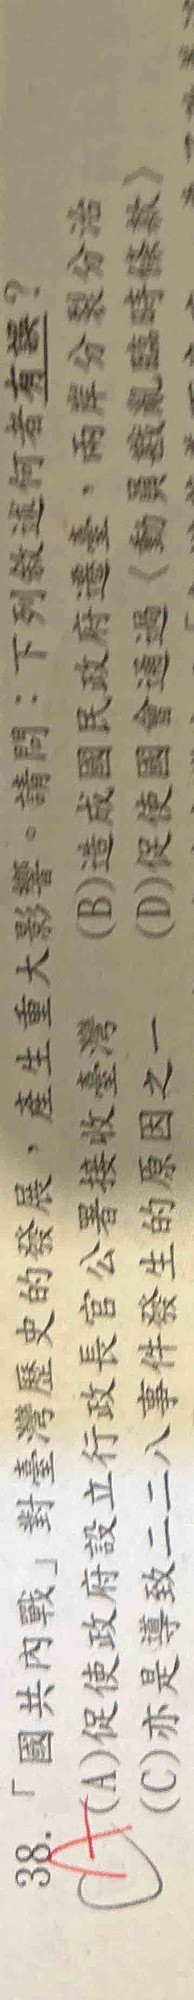 38.「國共內戰」對臺灣歷史的發展，產生重大影響。請問：下列敘述何者有誤？
(A)促使政府設立行政長官公署接收臺灣 (B)造成國民政府遷臺，兩岸分裂分治
(C)亦是導致二二八事件發生的原因之一 (D)促使國會通過〈動員戡亂臨時條款〉